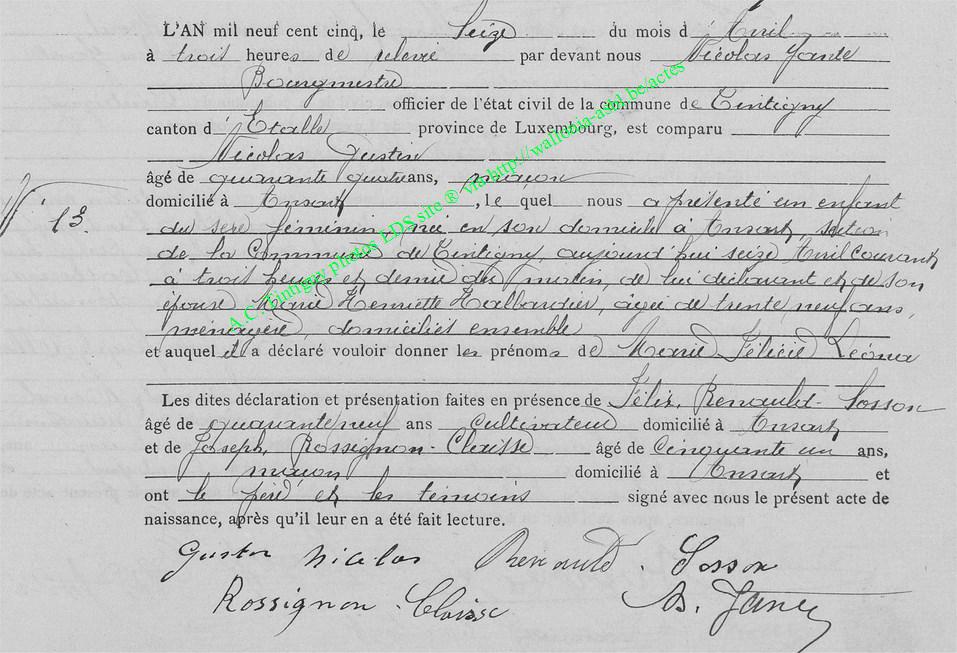 L'AN mil neuf cent cinq, le Seize du mois d'Avril
à trois heures de relevée par devant nous Nicolas
Bourgmestre
officier de l'état civil de la commune de Tintigny
canton d'Etalle province de Luxembourg, est comparu
Nicolas Gustin
âgé de quarante quatre ans, maçon
domicilié à Ansart, le quel nous a présenté un enfant
13 du sexe féminin, née en son domicile à Ansart, section
de la Commune de Tintigny, aujourd'hui seize Avril courant
à trois heures et demie du matin, de lui déclarant et de son
épouse Marie Henriette Hallbardier, âgée de trente neuf ans,
ménagère, domiciliés ensemble
et auquel il a déclaré vouloir donner les prénoms de Marie Félicie Léonie
Les dites déclaration et présentation faites en présence de Félix, Renauld-Sosson
âgé de quarante neuf ans cultivateur domicilié à Ansart
et de Joseph, Rossignon-Claisse âgé de Cinquante un ans,
maçon domicilié à Ansart et
ont le père et les témoins signé avec nous le présent acte de
naissance, après qu'il leur en a été fait lecture.
Gustin Nicolas Renauld. Sosson
Rossignon-Claisse
A.C. Tintigny photos LDS site ® via http://wallonia-asbl.be/actes